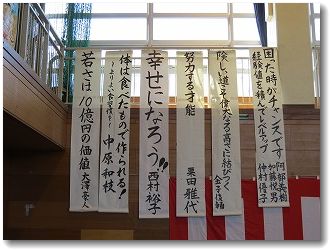 困った時がチャンスです
経験値を積んでレベルアップ
阿部美樹
加藤悦男
仲村優子
険しい道こそ偉大なる高さに結びつく
金子俊輔
努力する才能
栗田雅代
幸せになろう!!
西村裕子
体は食べたもので作られる!
中原和枝
若さは10億円の価値
大澤豪人